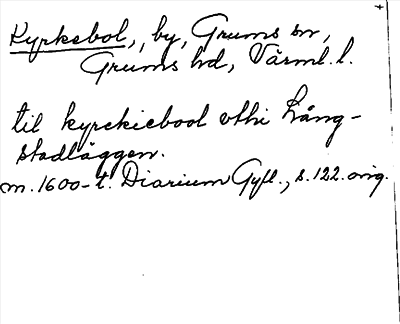 Kyrkebol, by, Grums sn,
Grums hd, Värml. l.
til kyrckiebool vthi Lång-
stadläggen.
m. 1600-t. Diarium Gyll., s. 122. orig.